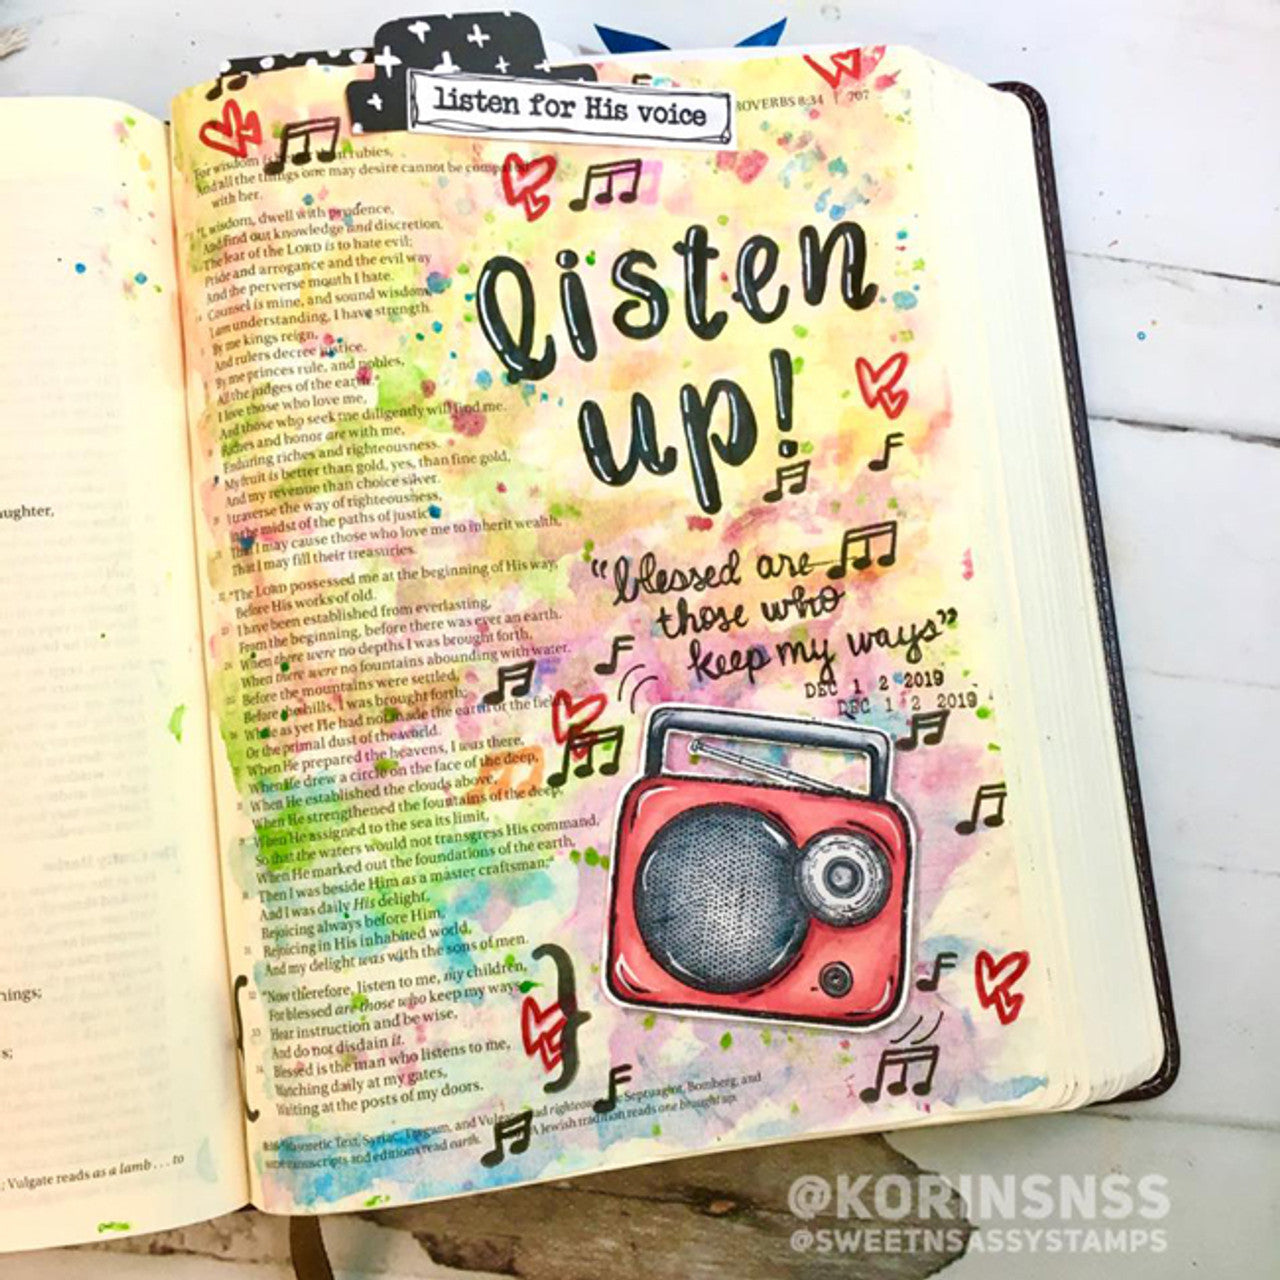 listen for His voice
ROVERBS 8:34 | 707
For wisdom is rubies,
And all the things one may desire cannot be compared
with her.
"I, wisdom, dwell with prudence,
And find out knowledge and discretion.
The fear of the LORD is to hate evil;
Pride and arrogance and the evil way
And the perverse mouth I hate.
Counsel is mine, and sound wisdom;
I am understanding, I have strength.
By me kings reign,
And rulers decree justice.
By me princes rule, and nobles,
All the judges of the earth.
I love those who love me,
And those who seek me diligently will find me.
Riches and honor are with me,
Enduring riches and righteousness.
My fruit is better than gold, yes, than fine gold,
And my revenue than choice silver.
I traverse the way of righteousness,
In the midst of the paths of justice,
That I may cause those who love me to inherit wealth,
That I may fill their treasuries.
"The LORD possessed me at the beginning of His way,
Before His works of old.
I have been established from everlasting,
From the beginning, before there was ever an earth.
When there were no depths I was brought forth,
When there were no fountains abounding with water.
Before the mountains were settled,
Before the hills, I was brought forth;
While as yet He had not made the earth or the fields,
Or the primal dust of the world.
When He prepared the heavens, I was there,
When He drew a circle on the face of the deep,
When He established the clouds above,
When He strengthened the fountains of the deep,
When He assigned to the sea its limit,
So that the waters would not transgress His command,
When He marked out the foundations of the earth,
Then I was beside Him as a master craftsman;
And I was daily His delight,
Rejoicing always before Him,
Rejoicing in His inhabited world,
And my delight was with the sons of men.
"Now therefore, listen to me, my children,
For blessed are those who keep my ways.
Hear instruction and be wise,
And do not disdain it.
Blessed is the man who listens to me,
Watching daily at my gates,
Waiting at the posts of my doors.
Masoretic Text, Syriac, Targum, and Vulgate read righteous Septuagint, Bomberg, and
manuscripts and editions read earth. A Jewish tradition reads one brought up.
listen
up!
"blessed are
those who
keep my ways"
DEC 1 2 2019
DEC 1 2 2019
aughter,
nings;
s;
; Vulgate reads as a lamb . . . to
@KORINSNSS
@SWEETNSASSYSTAMPS